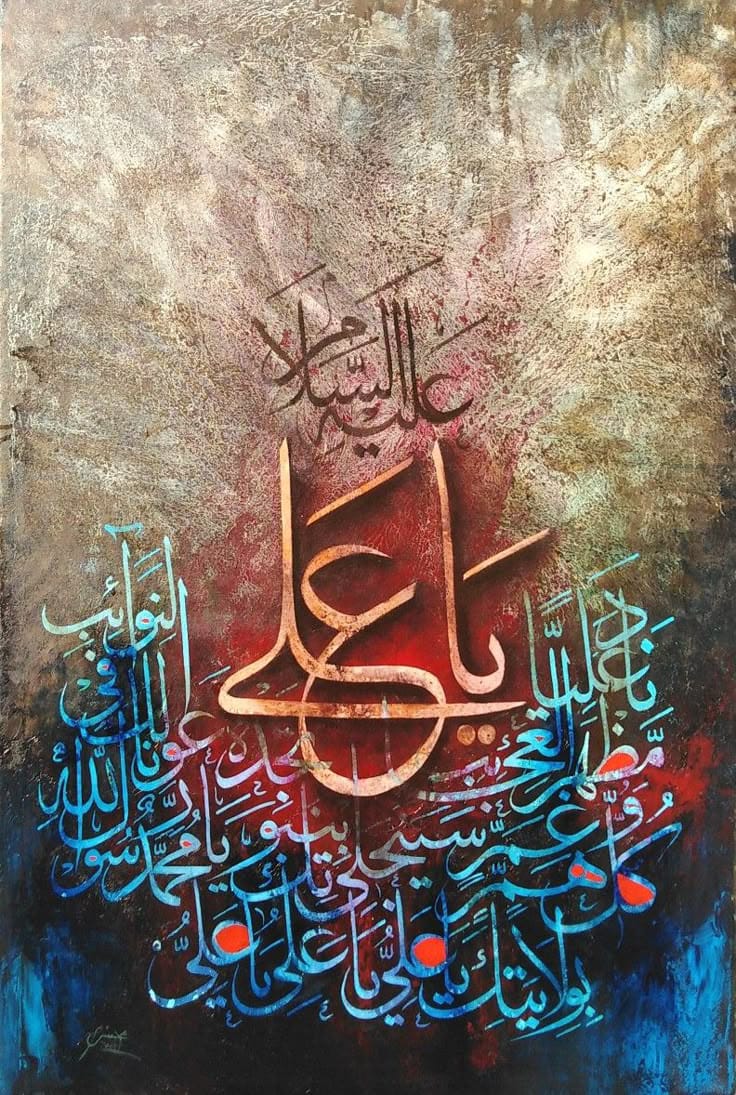 عَلَيهِ السَّلَام
يا عَلي
نَادِ عَلِيًّا
مَظْهَرَ العَجَائِبِ تَجِدْهُ عَوْنًا لَكَ فِي النَّوَائِبِ
كُلُّ هَمٍّ وَّغَمٍّ سَيَنْجَلِي بِنُبُوَّتِكَ يَا مُحَمَّدُ رَّسُولَ اللهِ
بِوِلَايَتِكَ يَا عَلِيُّ يَا عَلِيُّ يَا عَلِيُّ